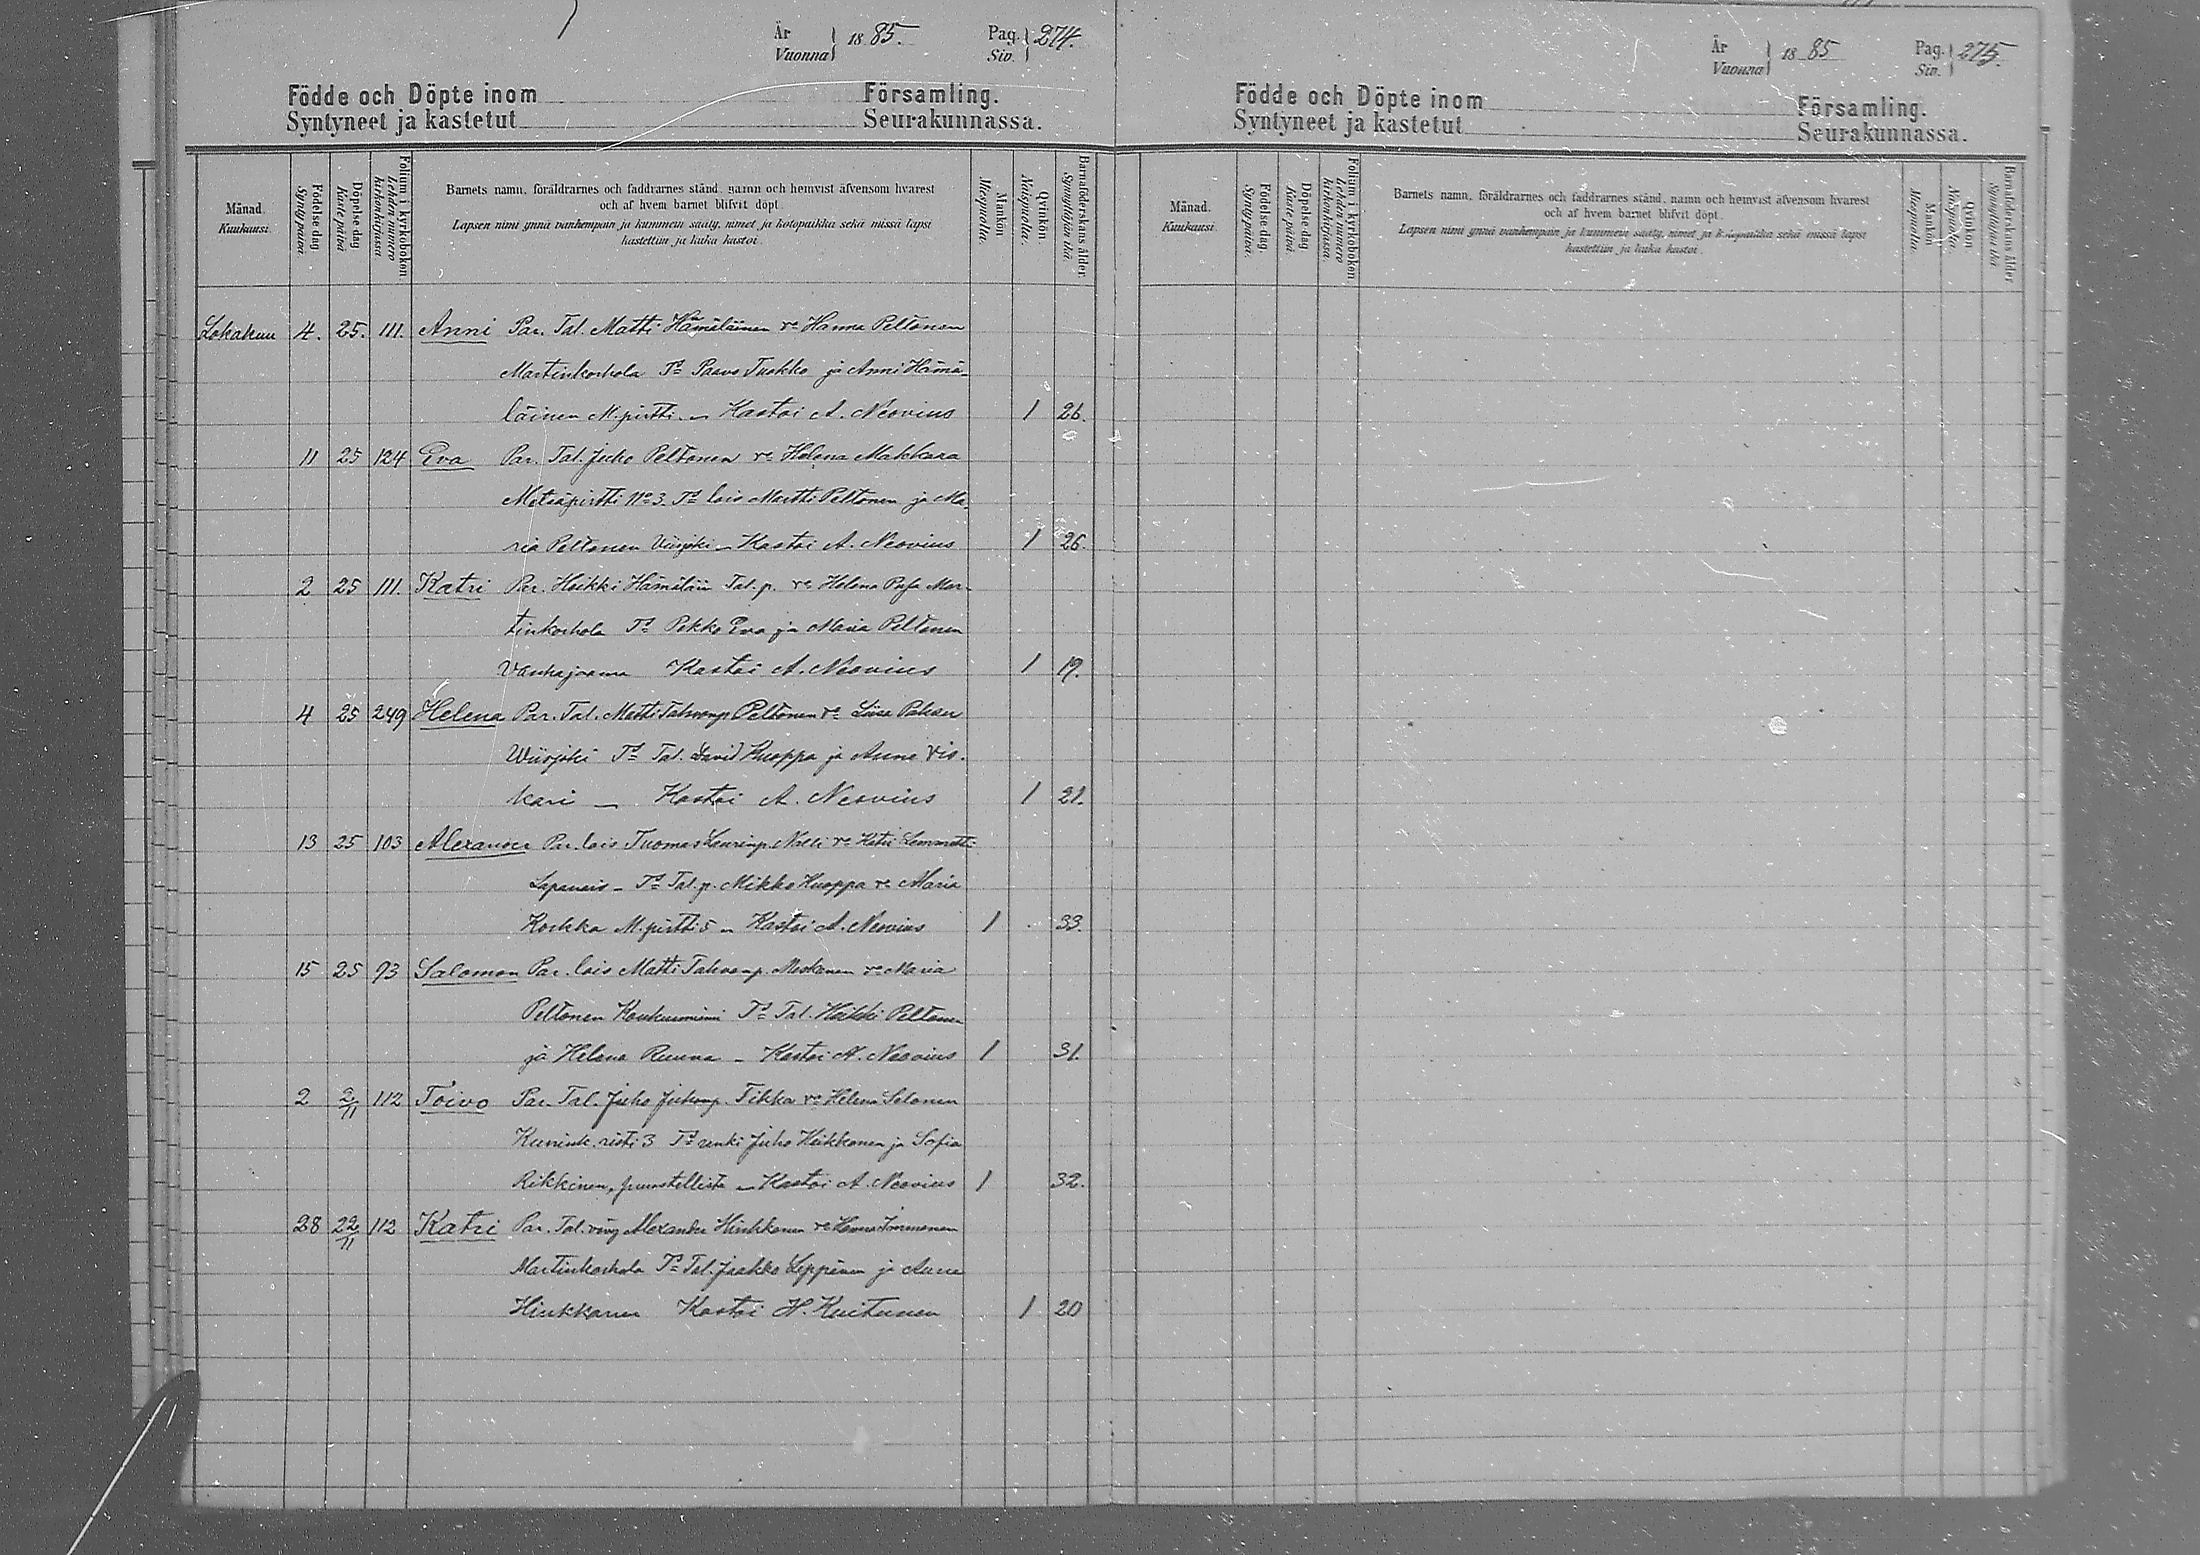 År
Vuonna } 18 85.
Pag.
Siv. } 274.
Födde och Döpte inom Församling.
Syntyneet ja kastetut Seurakunnassa.
Månad. Kuukausi.
Födelse dag. Synty päivä.
Döpelse dag Kaste päivä
Folium i kyrkoboken. Lehden numero kirkonkirjassa
Barnets namn, föräldrarnes och faddrarnes stånd, namn och hemvist äfvensom hvarest
och af hvem barnet blifvit döpt.
Lapsen nimi ynnä vanhempain ja kummein sääty, nimet ja kotopaikka sekä missä lapsi
kastettiin ja kuka kastoi.
Mankön Miespuolia.
Qvinkön Naispuolia.
Barnaföderskans ålder. Synnyttäjän ikä.
Lokakuu 4. 25. 111. Anni Par. Tal. Matti Hämäläinen vo Hanna Peltonen
Martinkorhola Td Paavo Tuokko ja Anni Hämä-
läinen M.pirtti. – Kastoi A. Neovius 1 26.
11 25 124 Eva Par. Tal. Juho Peltonen vo Helena Makkara
Metsäpirtti No 3. Td lois Martti Peltonen ja Ma-
ria Peltonen Viisjoki – Kastoi A. Neovius 1 26.
2 25 111. Katri Par. Heikki Hämäläin Tal. p. vo Helena Mar-
tinkorhola Td Pekko Eva ja Maria Peltonen
Vanhajaama Kastoi A. Neovius 1 19.
4 25 249 Helena Par. Tal. Matti Tahvonp Peltonen vo Liisa
Wiisjoki Td Tal. David Kuoppa ja Anna Vis-
kari – Kastoi A. Neovius 1 21.
13 25 103 Alexander Par. lois Tuomas Laurinp. vo Katri Lemmetti
Lapanais – Td Tal. p. Mikko Kuoppa vo Maria
Koskka M.pirtti 5 – Kastoi A. Neovius 1 33.
15 25 93 Salomon Par. lois Matti Tahvanp. Moskanen vo Maria
Peltonen Koukunniemi Td Tal. Heikki Peltonen
ja Helena Ruuna – Kastoi A. Neovius 1 31.
2 2/11 112 Toivo Par. Tal. Juho Juhonp. Tikka vo Helena Solonen
Kunink. risti 3 Td renki Juho Heikkonen ja Sofia
Rikkinen, – Kastoi A. Neovius 1 32.
28 22/11 112 Katri Par. Tal. Alexander Hinkkanen vo Hanna Immonen
Martinkorhola Td Tal. Jaakko Leppänen ja Anna
Hinkkanen Kastoi H. Kuitunen 1 20
År
Vuonna } 18 85
Pag.
Siv. } 275.
Födde och Döpte inom Församling.
Syntyneet ja kastetut Seurakunnassa.
Månad. Kuukausi.
Födelse dag. Synty päivä.
Döpelse dag Kaste päivä.
Folium i kyrkoboken. Lehden numero kirkonkirjassa.
Barnets namn, föräldrarnes och faddrarnes stånd, namn och hemvist äfvensom hvarest
och af hvem barnet blifvit döpt.
Lapsen nimi ynnä vanhempain ja kummein sääty, nimet ja kotopaikka sekä missä lapsi
kastettiin ja kuka kastoi.
Mankön Miespuolia.
Qvinkön Naispuolia.
Barnaföderskans ålder Synnyttäjän ikä